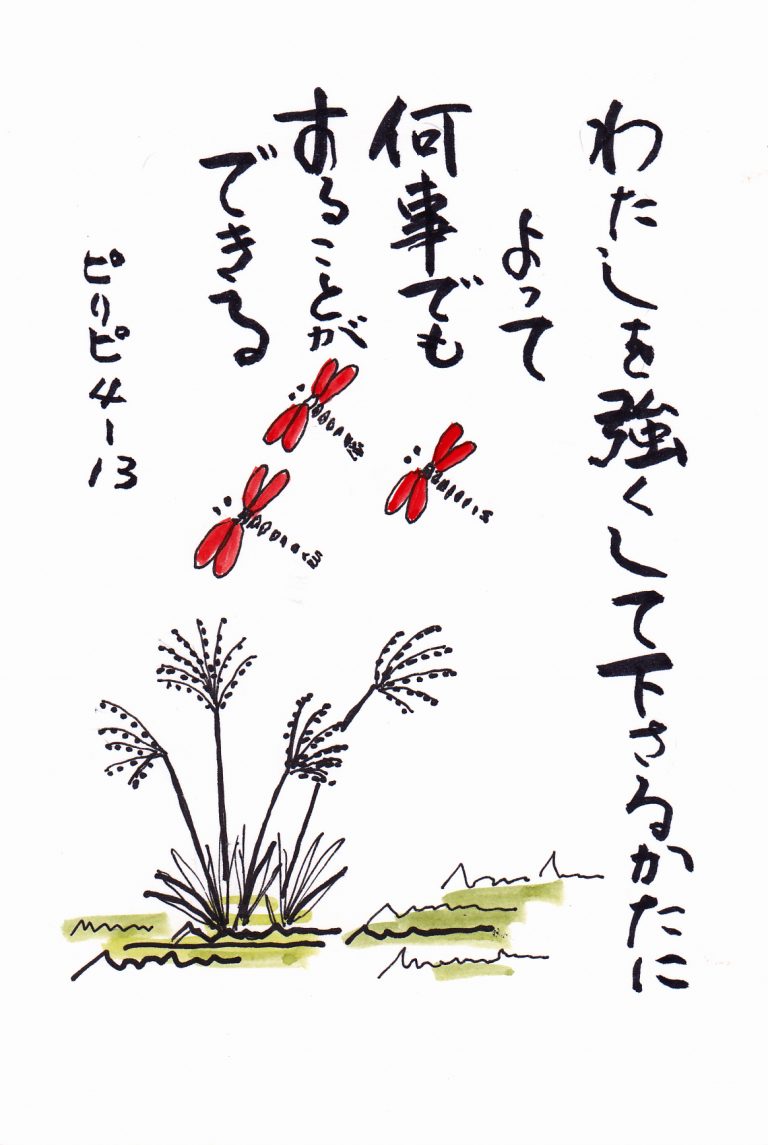 わたしを強くして下さるかたに
よって
何事でも
することが
できる
ピリピ4-13